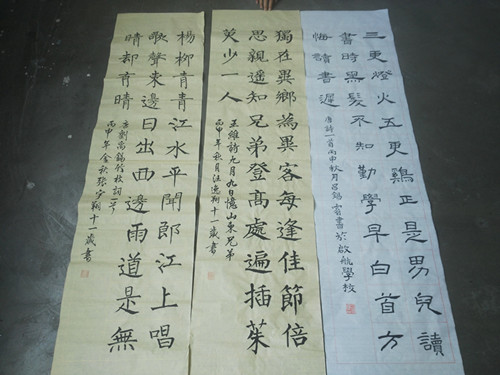 三更燈火五更鷄正是男兒讀
書時黑髮不知勤學早白首方
悔讀書遲
唐詩一首丙申秋月呂錫書於啟航學校
獨在異鄉為異客每逢佳節倍
思親遥知兄弟登高處遍插茱
萸少一人
王維詩九月九日憶山東兄弟
丙申年秋月汪逸翔十一歲書
楊柳青青江水平聞郎江上唱
歌聲東邊日出西邊雨道是無
晴却有晴
唐劉禹錫竹枝詞一首
丙申年金秋張宇翔十一歲書